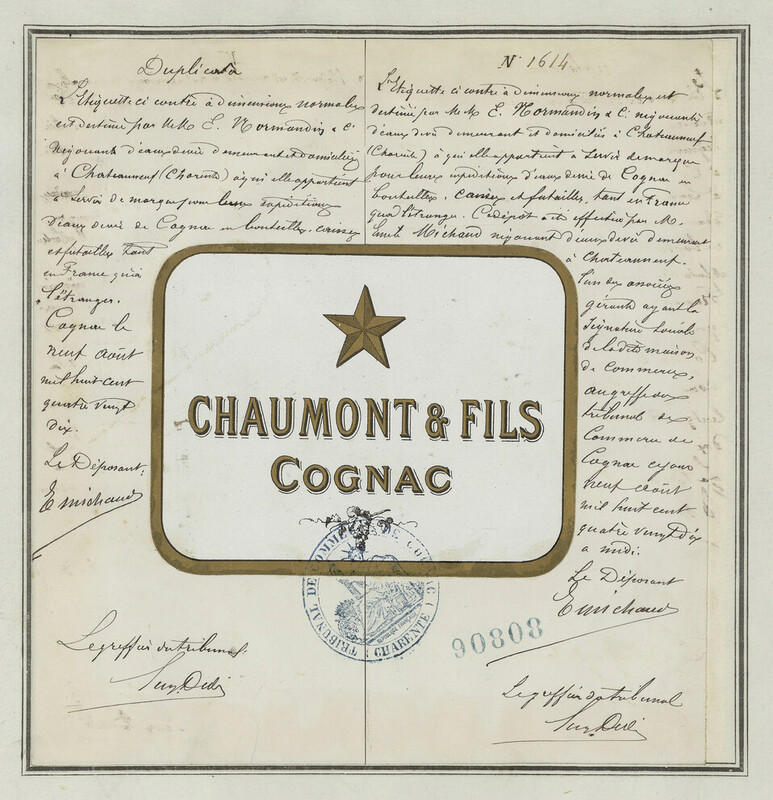 Duplicata
L'Etiquette ci contre à dimensions normales
est destinée par MM E. Normandin & Cie
Négociants d'eaux devie demeurant et domiciliés
à Chateauneuf (Charente) à qui elle appartient
à servir de marque pour leurs expéditions
d'eaux devie de Cognac en bouteilles, caisses
et futailles tant
en France qu'à
l'étranger.
Cognac le
neuf août
mil huit cent
quatre vingt
dix.
Le Déposant:
E michaud
Le greffier du tribunal
N° 1614
L'Etiquette ci contre à dimensions normales est
destinée par MM E. Normandin & Cie négociants
d'eaux devie demeurant et domiciliés à Chateauneuf
(Charente) à qui elle appartient à servir de marque
pour leurs expéditions d'eaux devie de Cognac en
bouteilles, caisses et futailles, tant en France
qu'à l'étranger. Ce dépôt a été effectué par M.
Emile Michaud négociant d'eaux devie demeurant
à Chateauneuf.
l'un des associés
gérants ayant la
signature sociale
de la dite maison
de Commerce,
au greffe du
tribunal de
Commerce de
Cognac ce jour
neuf août
mil huit cent
quatre vingt dix
à midi.
Le Déposant
E michaud
Le greffier du tribunal
CHAUMONT & FILS
COGNAC
TRIBUNAL DE COMMERCE DE COGNAC
(CHARENTE)
90808